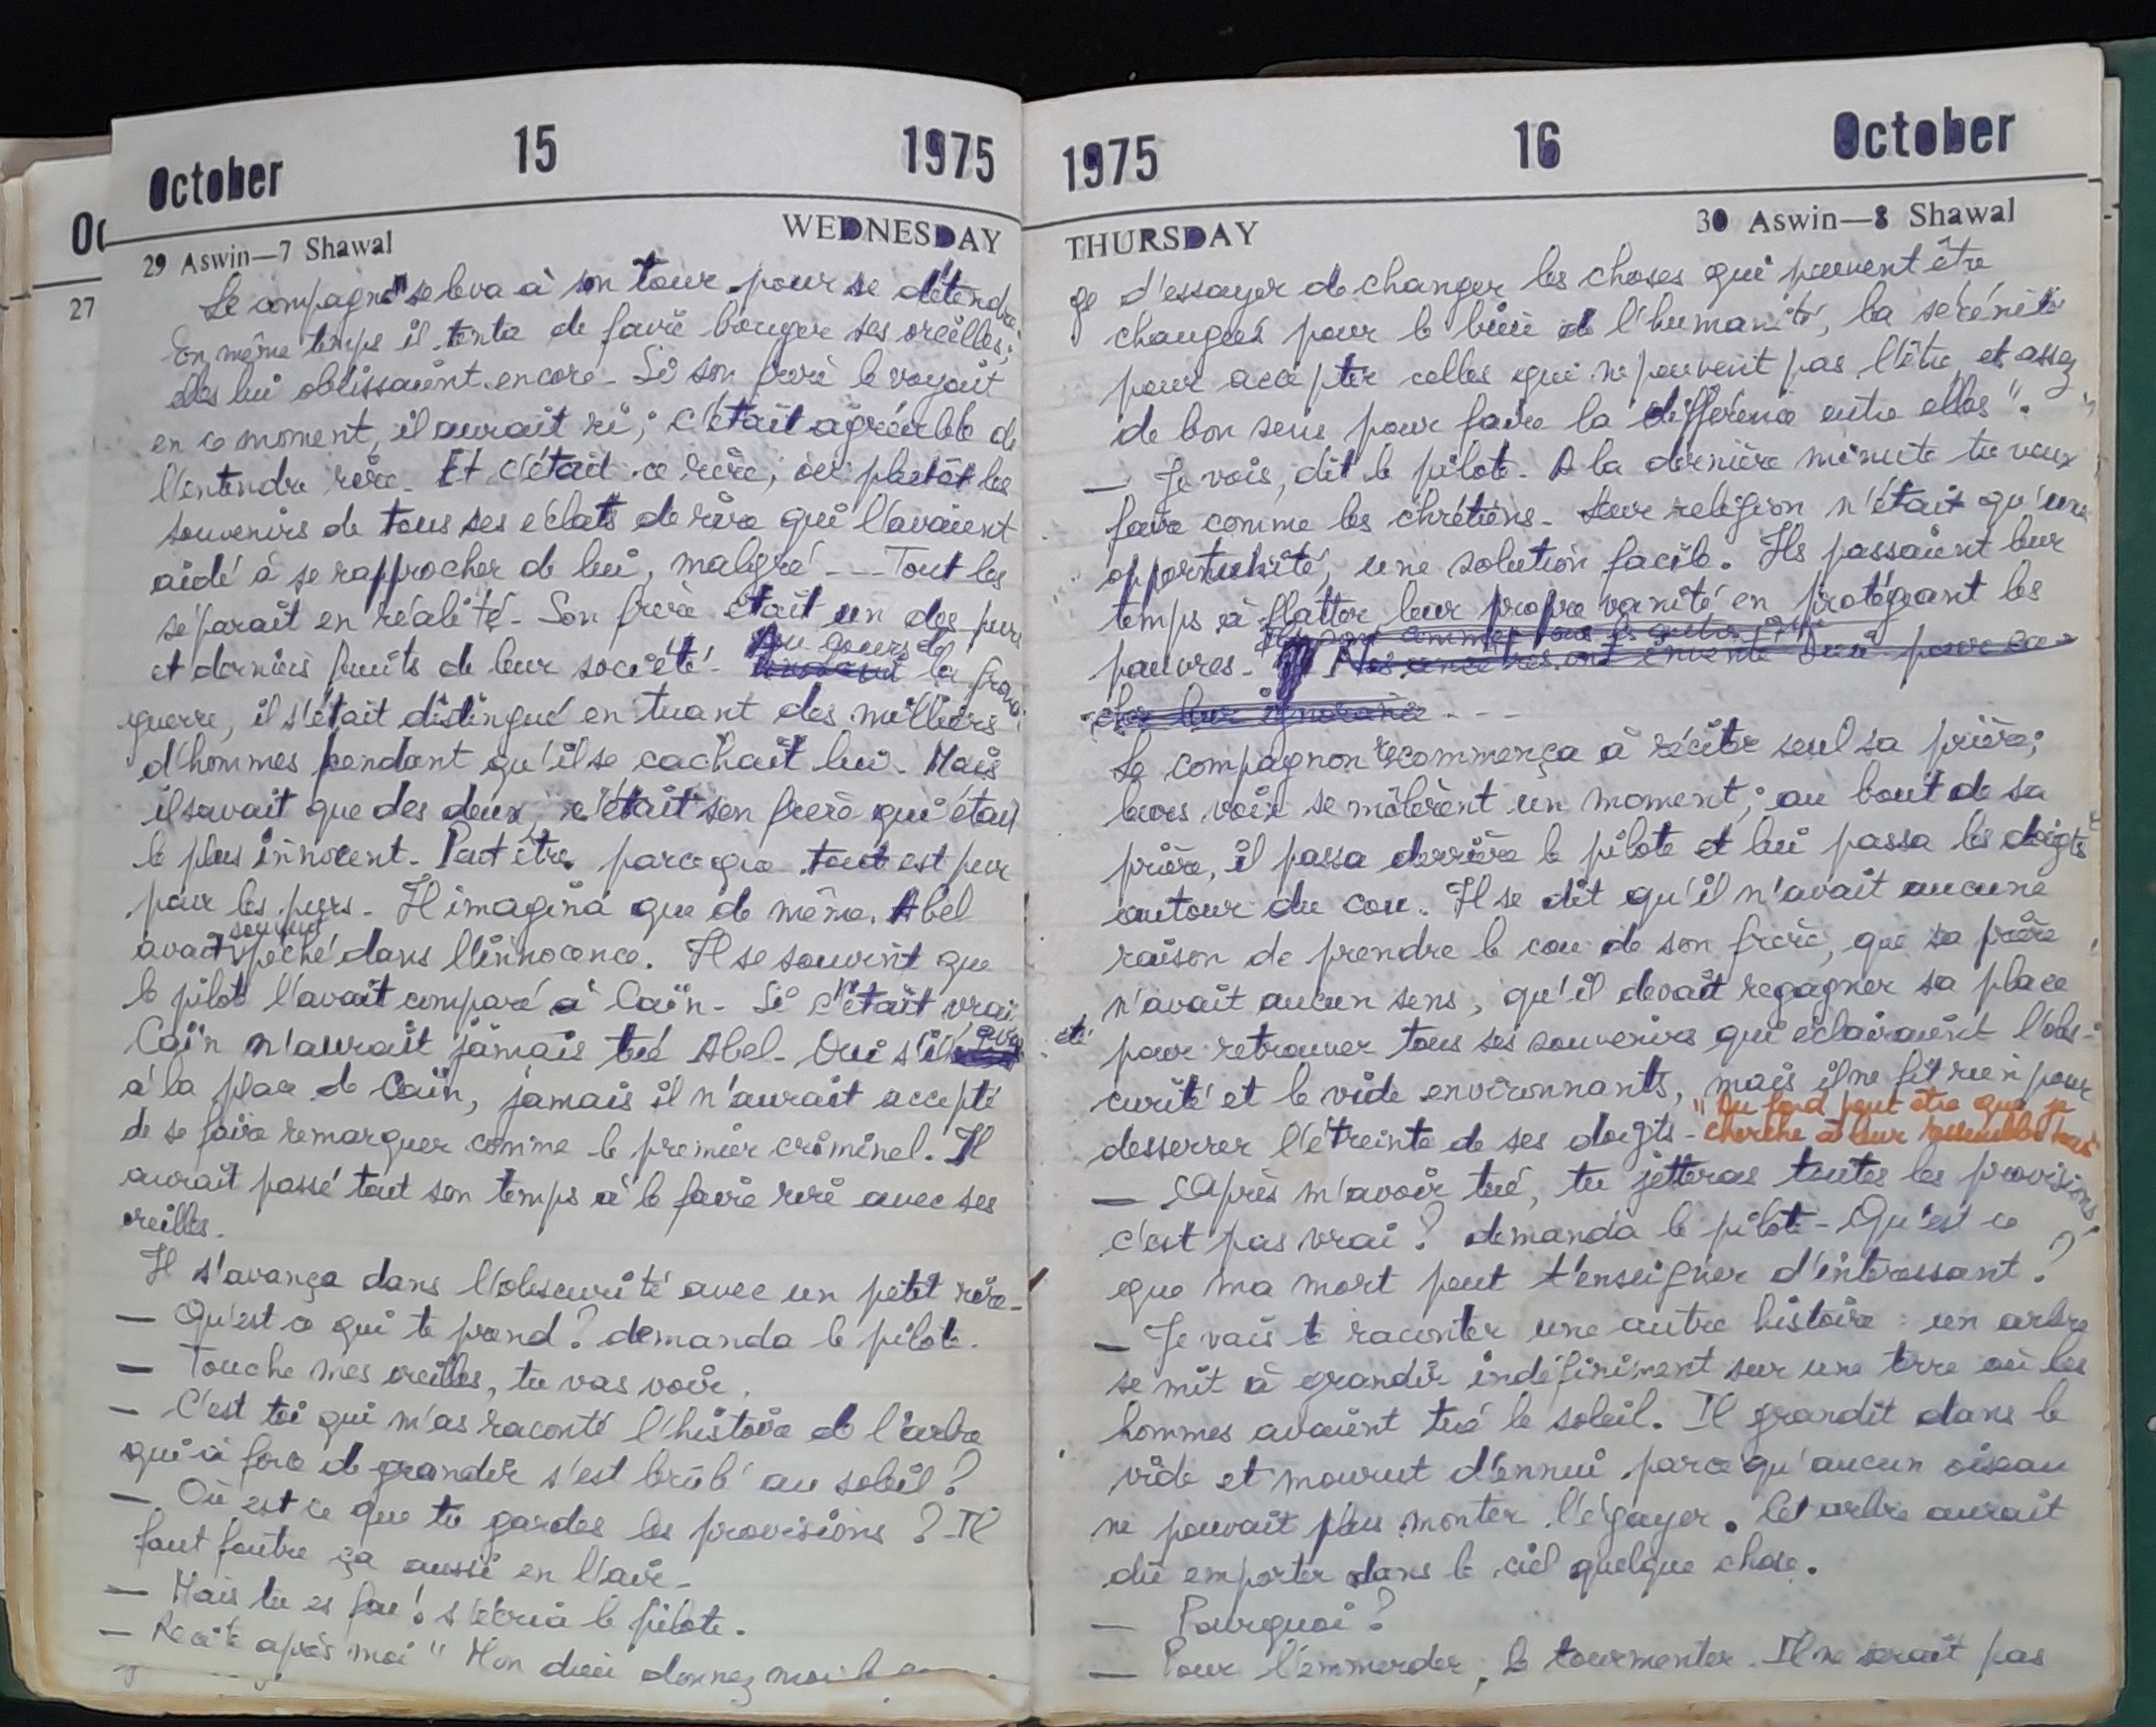 October 15 1975
WEDNESDAY
29 Aswin—7 Shawal
Le compagnon se leva à son tour pour se détendre
En même temps il tenta de faire bouger ses oreilles;
elles lui obéissaient encore. Si son frère le voyait
en ce moment, il aurait ri; c'était agréable de
l'entendre rire. Et c'était ce rire, ou plutôt les
souvenirs de tous ses éclats de rire qui l'avaient
aidé à se rapprocher de lui, malgré --- Tout les
séparait en réalité. Son frère était un des purs
et derniers fruits de leur société. Au cours de la
guerre, il s'était distingué en tuant des milliers
d'hommes pendant qu'il se cachait lui. Mais
il savait que des deux, c'était son frère qui était
le plus innocent. Peut être parce que tout est pur
pour les purs. Il imagina que de même, Abel
avait souvent péché dans l'innocence. Il se souvint que
le pilote l'avait comparé à Caïn. Si c'était vrai
Caïn n'aurait jamais tué Abel. Oui s'il
à la place de Caïn, jamais il n'aurait accepté
de se faire remarquer comme le premier criminel. Il
aurait passé tout son temps à le faire rire avec ses
oreilles.
Il s'avança dans l'obscurité avec un petit rire.
— Qu'est ce qui te prend? demanda le pilote.
— Touche mes oreilles, tu vas voir.
— C'est toi qui m'as raconté l'histoire de l'arbre
qui à force de grandir s'est brûlé au soleil?
— Où est ce que tu gardes les provisions? Il
faut foutre ça aussi en l'air.
— Mais tu es fou! s'écria le pilote.
— Récite après moi " Mon dieu donnez moi le
1975 16 October
THURSDAY
30 Aswin—8 Shawal
d'essayer de changer les choses qui peuvent être
changées pour le bien de l'humanité, la sérénité
pour accepter celles qui ne peuvent pas l'être, et assez
de bon sens pour faire la différence entre elles".
— Je vois, dit le pilote. A la dernière minute tu veux
faire comme les chrétiens. Leur religion n'était qu'une
opportunité, une solution facile. Ils passaient leur
temps à flatter leur propre vanité en protégeant les
pauvres. Nos ancêtres ont inventé Dieu pour ca-
cher leur ignorance ---
Le compagnon recommença à réciter seul sa prière;
leurs voix se mêlèrent un moment; au bout de sa
prière, il passa derrière le pilote et lui passa les doigts
autour du cou. Il se dit qu'il n'avait aucune
raison de prendre le cou de son frère, que sa prière
n'avait aucun sens, qu'il devait regagner sa place
pour retrouver tous ses souvenirs qui éclairaient l'obs-
curité et le vide environnants, mais il ne fit rien pour
desserrer l'étreinte de ses doigts. "Au fond peut être que je
cherche à leur ressembler tous
— Après m'avoir tué, tu jetteras toutes les provisions
c'est pas vrai? demanda le pilote. Qu'est ce
que ma mort peut t'enseigner d'intéressant?
— Je vais te raconter une autre histoire: un arbre
se mit à grandir indéfiniment sur une terre où les
hommes avaient tué le soleil. Il grandit dans le
vide et mourut d'ennui parce qu'aucun oiseau
ne pouvait plus monter l'égayer. Cet arbre aurait
dû emporter dans le ciel quelque chose.
— Pourquoi?
— Pour l'emmerder, le tourmenter. Il ne serait pas